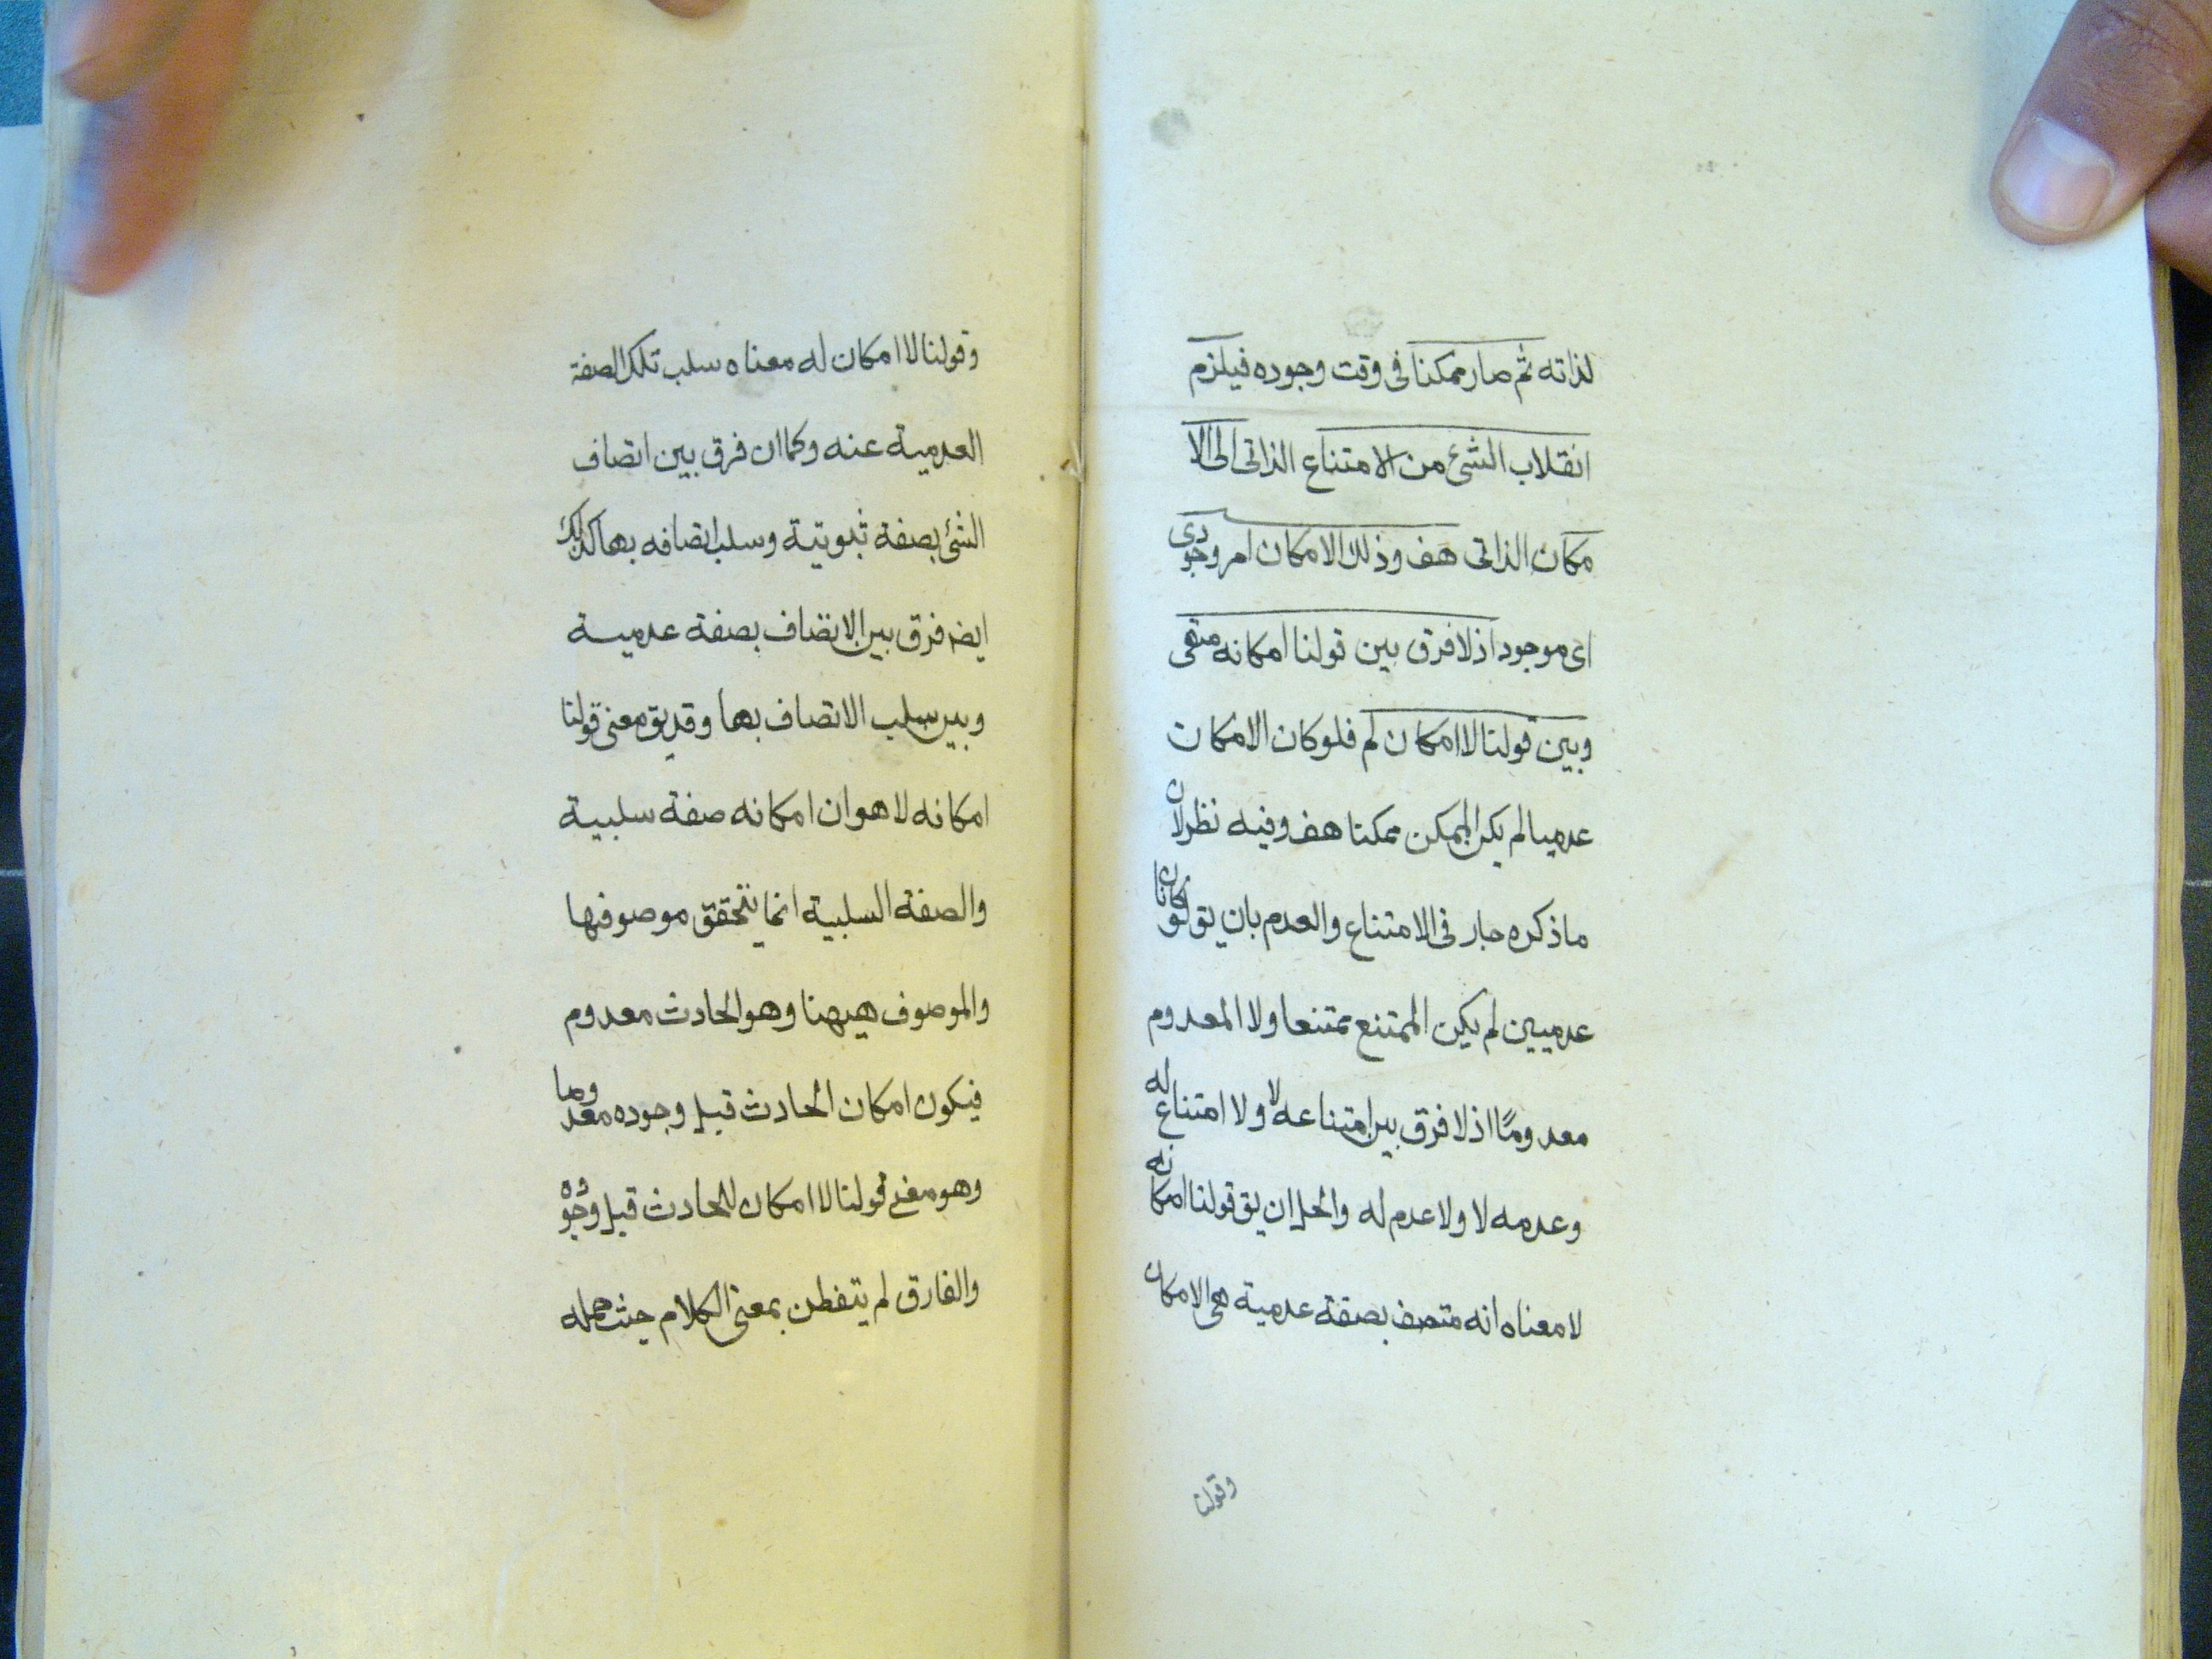 لذاته ثم صار ممكنا فى وقت وجوده فيلزم
انقلاب الشئ من الامتناع الذاتى الى الا
مكان الذاتى هف وذلك الامكان امر وجودى
اى موجود اذ لا فرق بين قولنا امكانه منفى
وبين قولنا لا امكان له فلو كان الامكان
عدميا لم يكن الممكن ممكنا هف وفيه نظر لان
ما ذكره جار فى الامتناع والعدم بان يق لو كانا
عدميين لم يكن الممتنع ممتنعا ولا المعدوم
معدومًا اذ لا فرق بين امتناعه لا ولا امتناع له
وعدمه لا ولا عدم له والحل ان يق قولنا امكانه
لا معناه انه متصف بصفة عدمية هى الامكان
وقولنا
وقولنا لا امكان له معناه سلب تلك الصفة
العدمية عنه وكما ان فرق بين اتصاف
الشئ بصفة ثبوتية وسلب اتصافه بها كذلك
ايضا فرق بين الاتصاف بصفة عدمية
وبين سلب الاتصاف بها وقد يق معنى قولنا
امكانه لا هو ان امكانه صفة سلبية
والصفة السلبية انما يتحقق موصوفها
والموصوف هيهنا وهو الحادث معدوم
فيكون امكان الحادث قبل وجوده معدوما
وهو معنى قولنا لا امكان للحادث قبل وجوده
والفارق لم يتفطن بمعنى الكلام حيث حمله